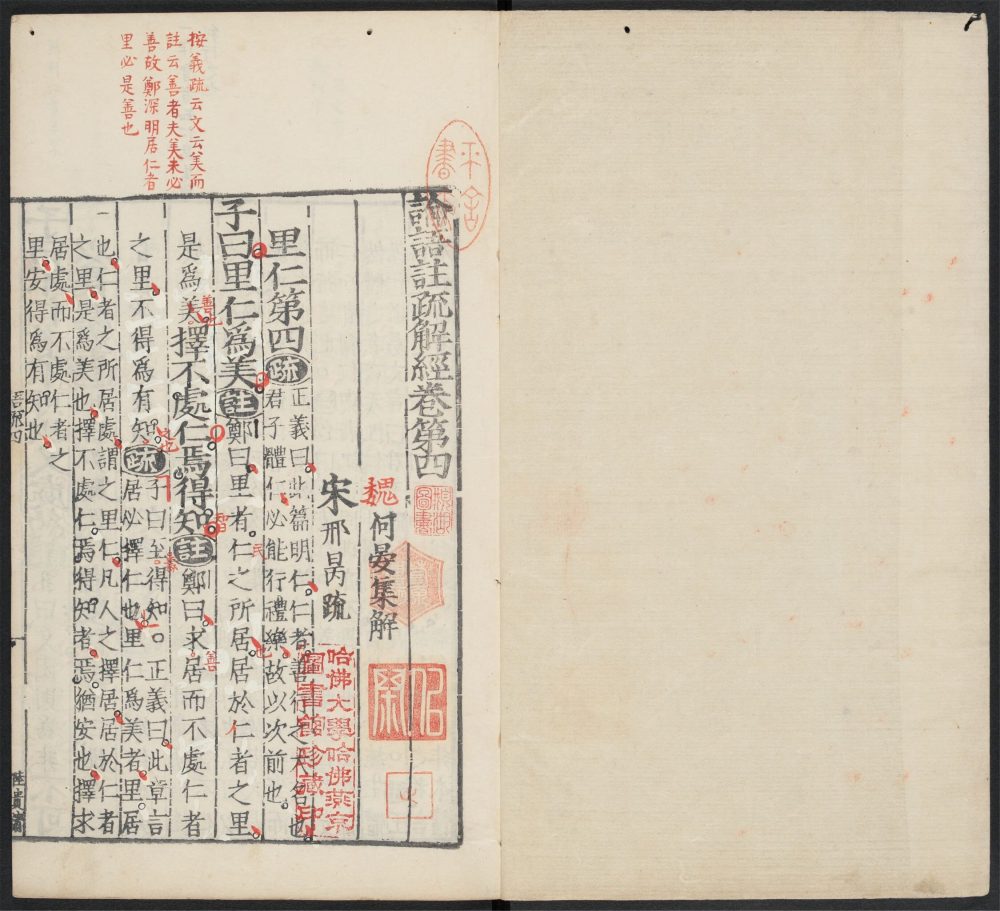 按義疏云文云美而
註云善者夫美未必
善故鄭深明居仁者
里必是善也
論語註疏解經卷第四
魏何晏集解
宋邢昺疏
哈佛大學哈佛燕京
圖書館珍藏印
里仁第四疏正義曰此篇明仁仁者善行之大名也
君子體仁必能行禮樂故以次前也
子曰里仁爲美註鄭曰里者仁之所居居於仁者之里
民
也
是爲美擇不處仁焉得知註鄭曰求居而不處仁者
善也
智
善
之里不得爲有知疏子曰至得知。正義曰此章言
之也
居必擇仁也里仁爲美者里居
也仁者之所居處謂之里仁凡人之擇居居於仁者
之里是爲美也擇不處仁焉得知者焉猶安也擇求
居處而不處仁者之
里安得爲有知也